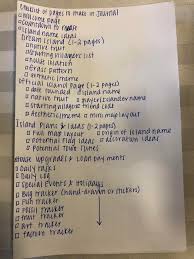 Checklist of pages to make in Journal
□ Welcome page
□ Countdown to
□ Island name ideas
Dream Island (1-2 pages)
□ native fruit
□ Starting villagers list
□ house location
□ Grass pattern
□ aesthetic/theme
Official Island Page (1-2 pages)
□ date founded □ island name
□ native fruit □ player/islander name
□ Starting villagers □ island song
□ Aesthetic/theme □ mini map layout
Island Plans & Ideas (1-2 pages)
□ Full map layout □ origin of island name
□ Potential flag ideas □ decoration ideas
□ Potential town tunes
House upgrades & Loan payments
□ Daily tasks
□ Daily log
□ Special Events & Holidays
□ Bug tracker (hand-drawn or stickers)
□ Fish tracker
□ Fossil tracker
□ Fruit tracker
□ Art tracker
□ tracker